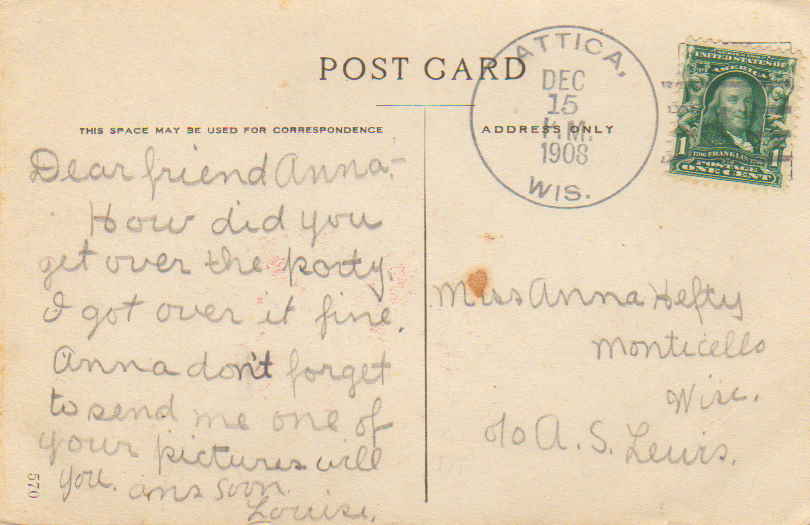 POST CARD
THIS SPACE MAY BE USED FOR CORRESPONDENCE
ADDRESS ONLY
ATTICA,
DEC
15
M.
1908
WIS.
UNITED STATES OF
AMERICA
1 FRANKLIN 1
POSTAGE
ONE CENT
Dear friend Anna,-
How did you
get over the party.
I got over it fine.
Anna don't forget
to send me one of
your pictures will
you. ans soon.
Louise.
Miss Anna Hefty
Monticello
Wisc.
c/o A. S. Lewis.
570